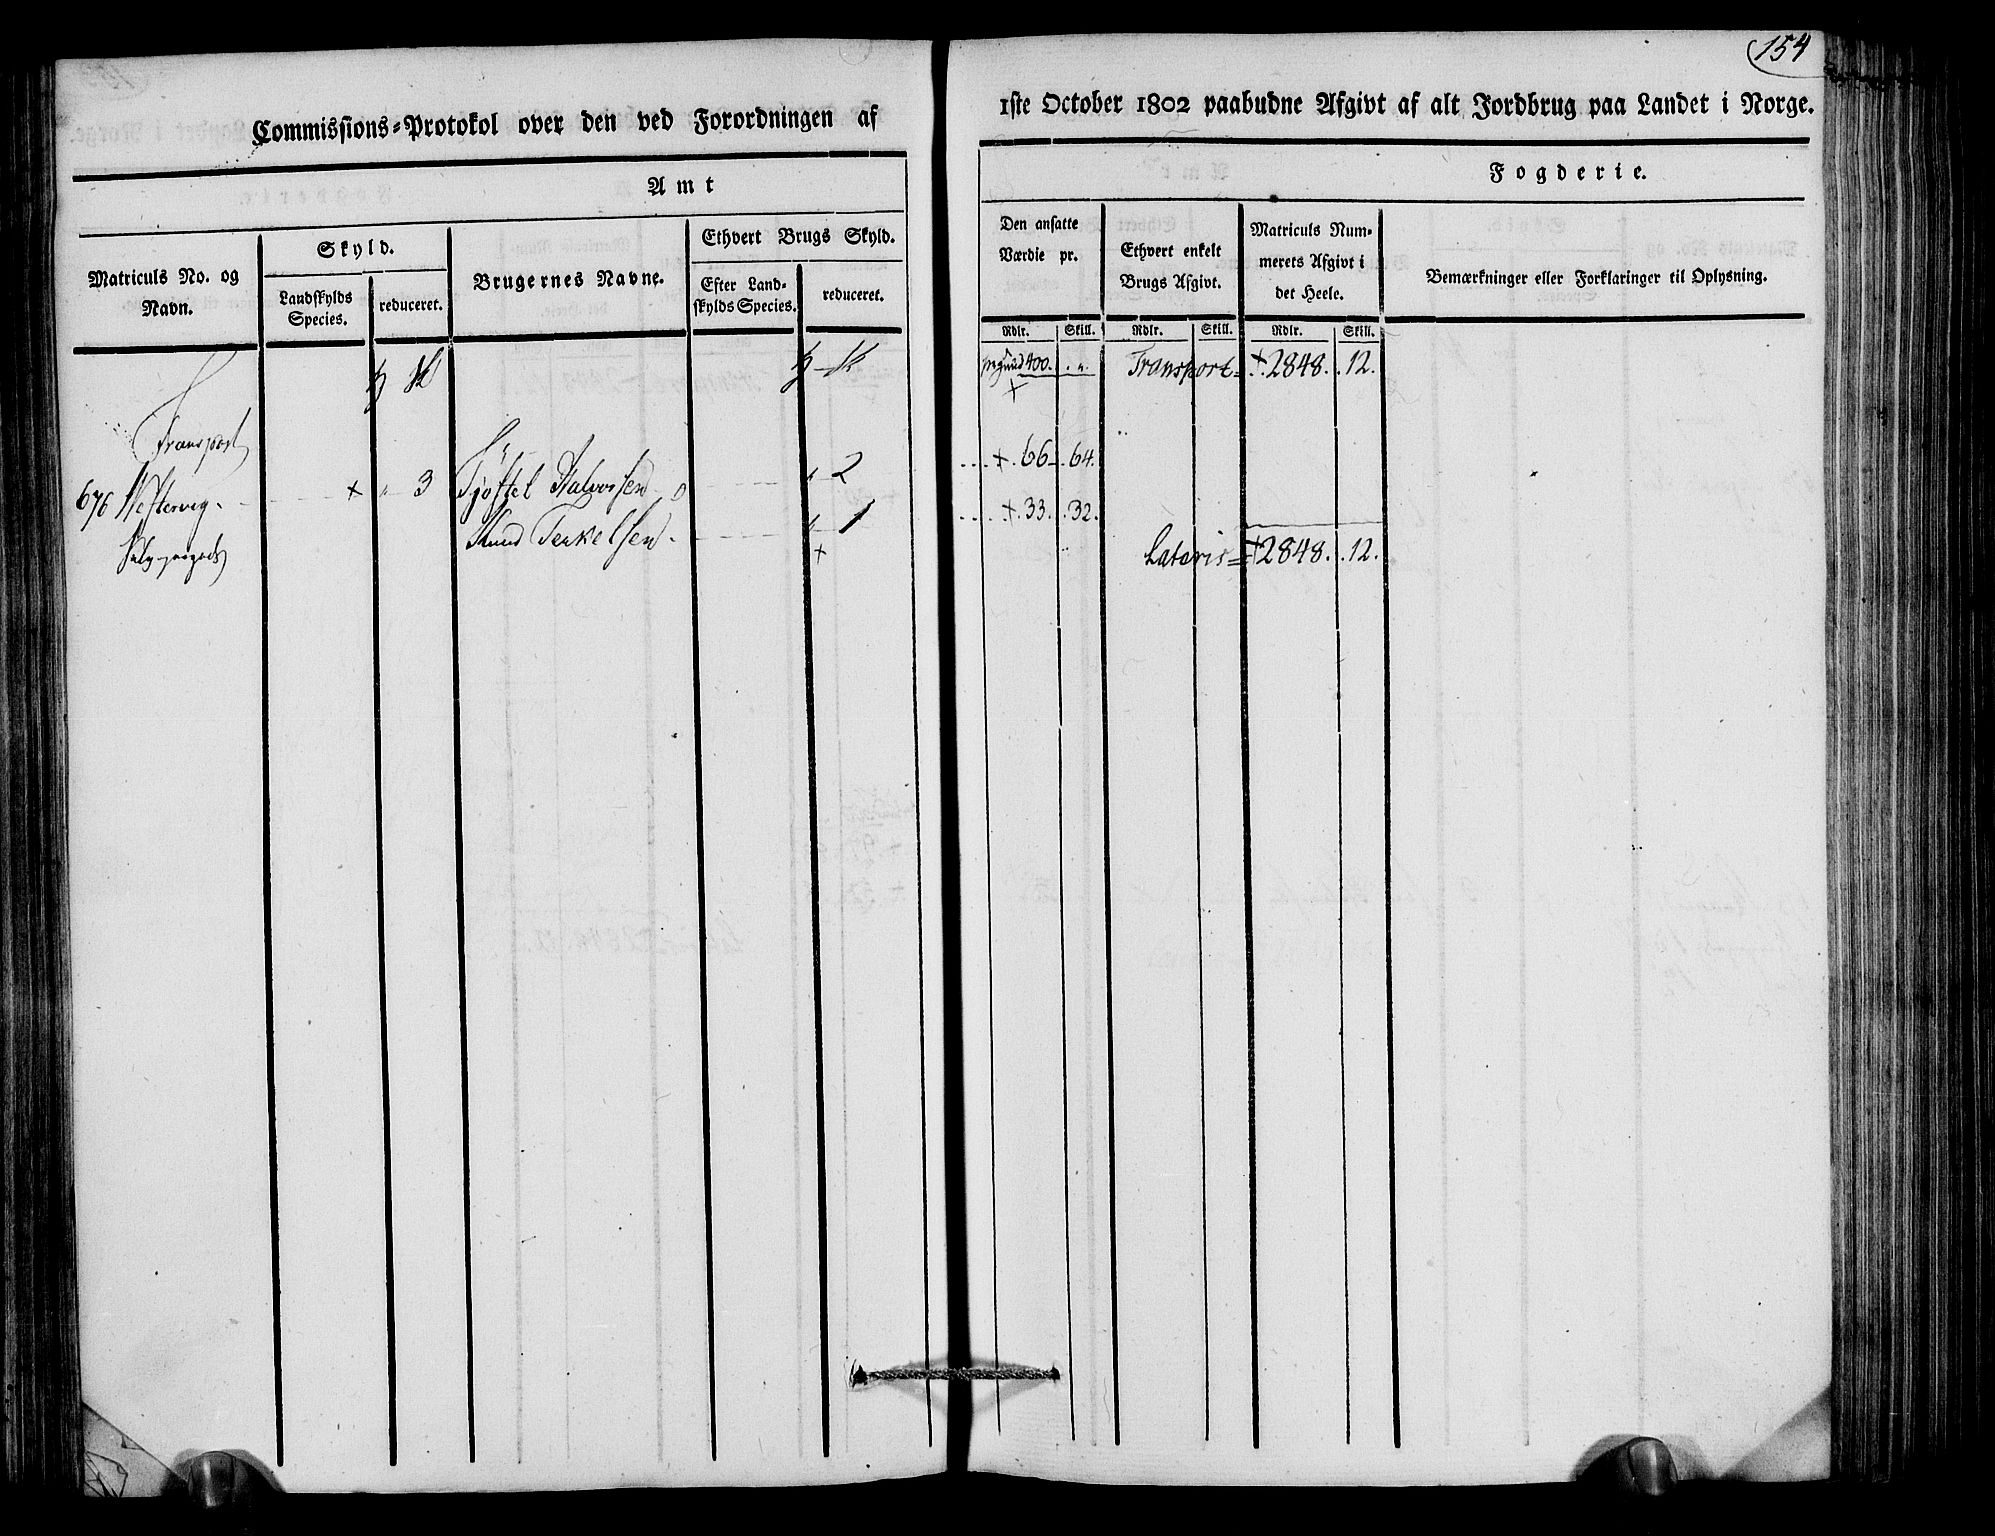 154
Commissions-Protokol over den ved Forordningen af
1ste October 1802 paabudne Afgivt af alt Jordbrug paa Landet i Norge.
Amt
Fogderie.
Matriculs No. og Navn.
Skyld.
Landskylds Species.
reduceret.
Brugernes Navne.
Ethvert Brugs Skyld.
Efter Landskylds Species.
reduceret.
Den ansatte Værdie pr.
Rdlr. Skill.
Ethvert enkelt Brugs Afgivt.
Rdlr. Skill.
Matriculs Nummerets Afgivt i det Heele.
Rdlr. Skill.
Bemærkninger eller Forklaringer til Oplysning.
400. „ Transport = + 2848. 12.
Transport
676 Westerveg. + „ 3 Tjøstel Halvorsen „ 2 + 66 64.
Knud Terkelsen „ 1 + 33. 32.
+
Lateris = + 2848. 12.